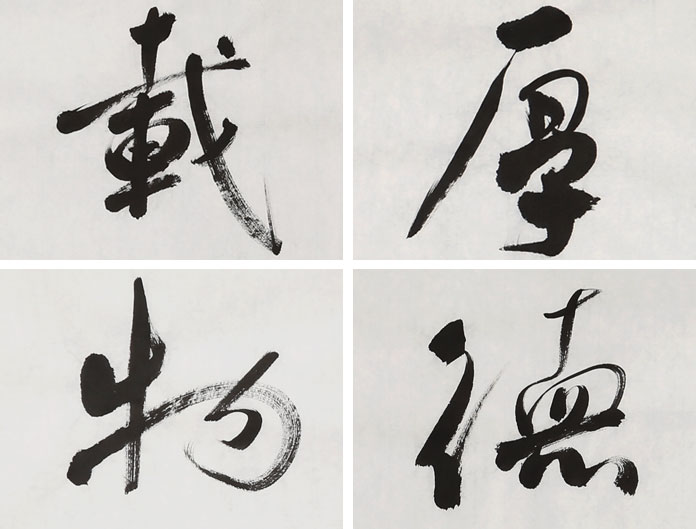 厚德
載物